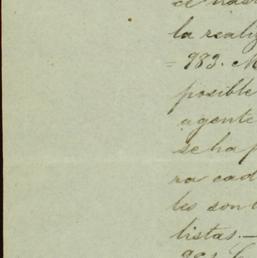 la realiz
= 983. M
posible
agente
se ha p
ra cad
les son
listas.—